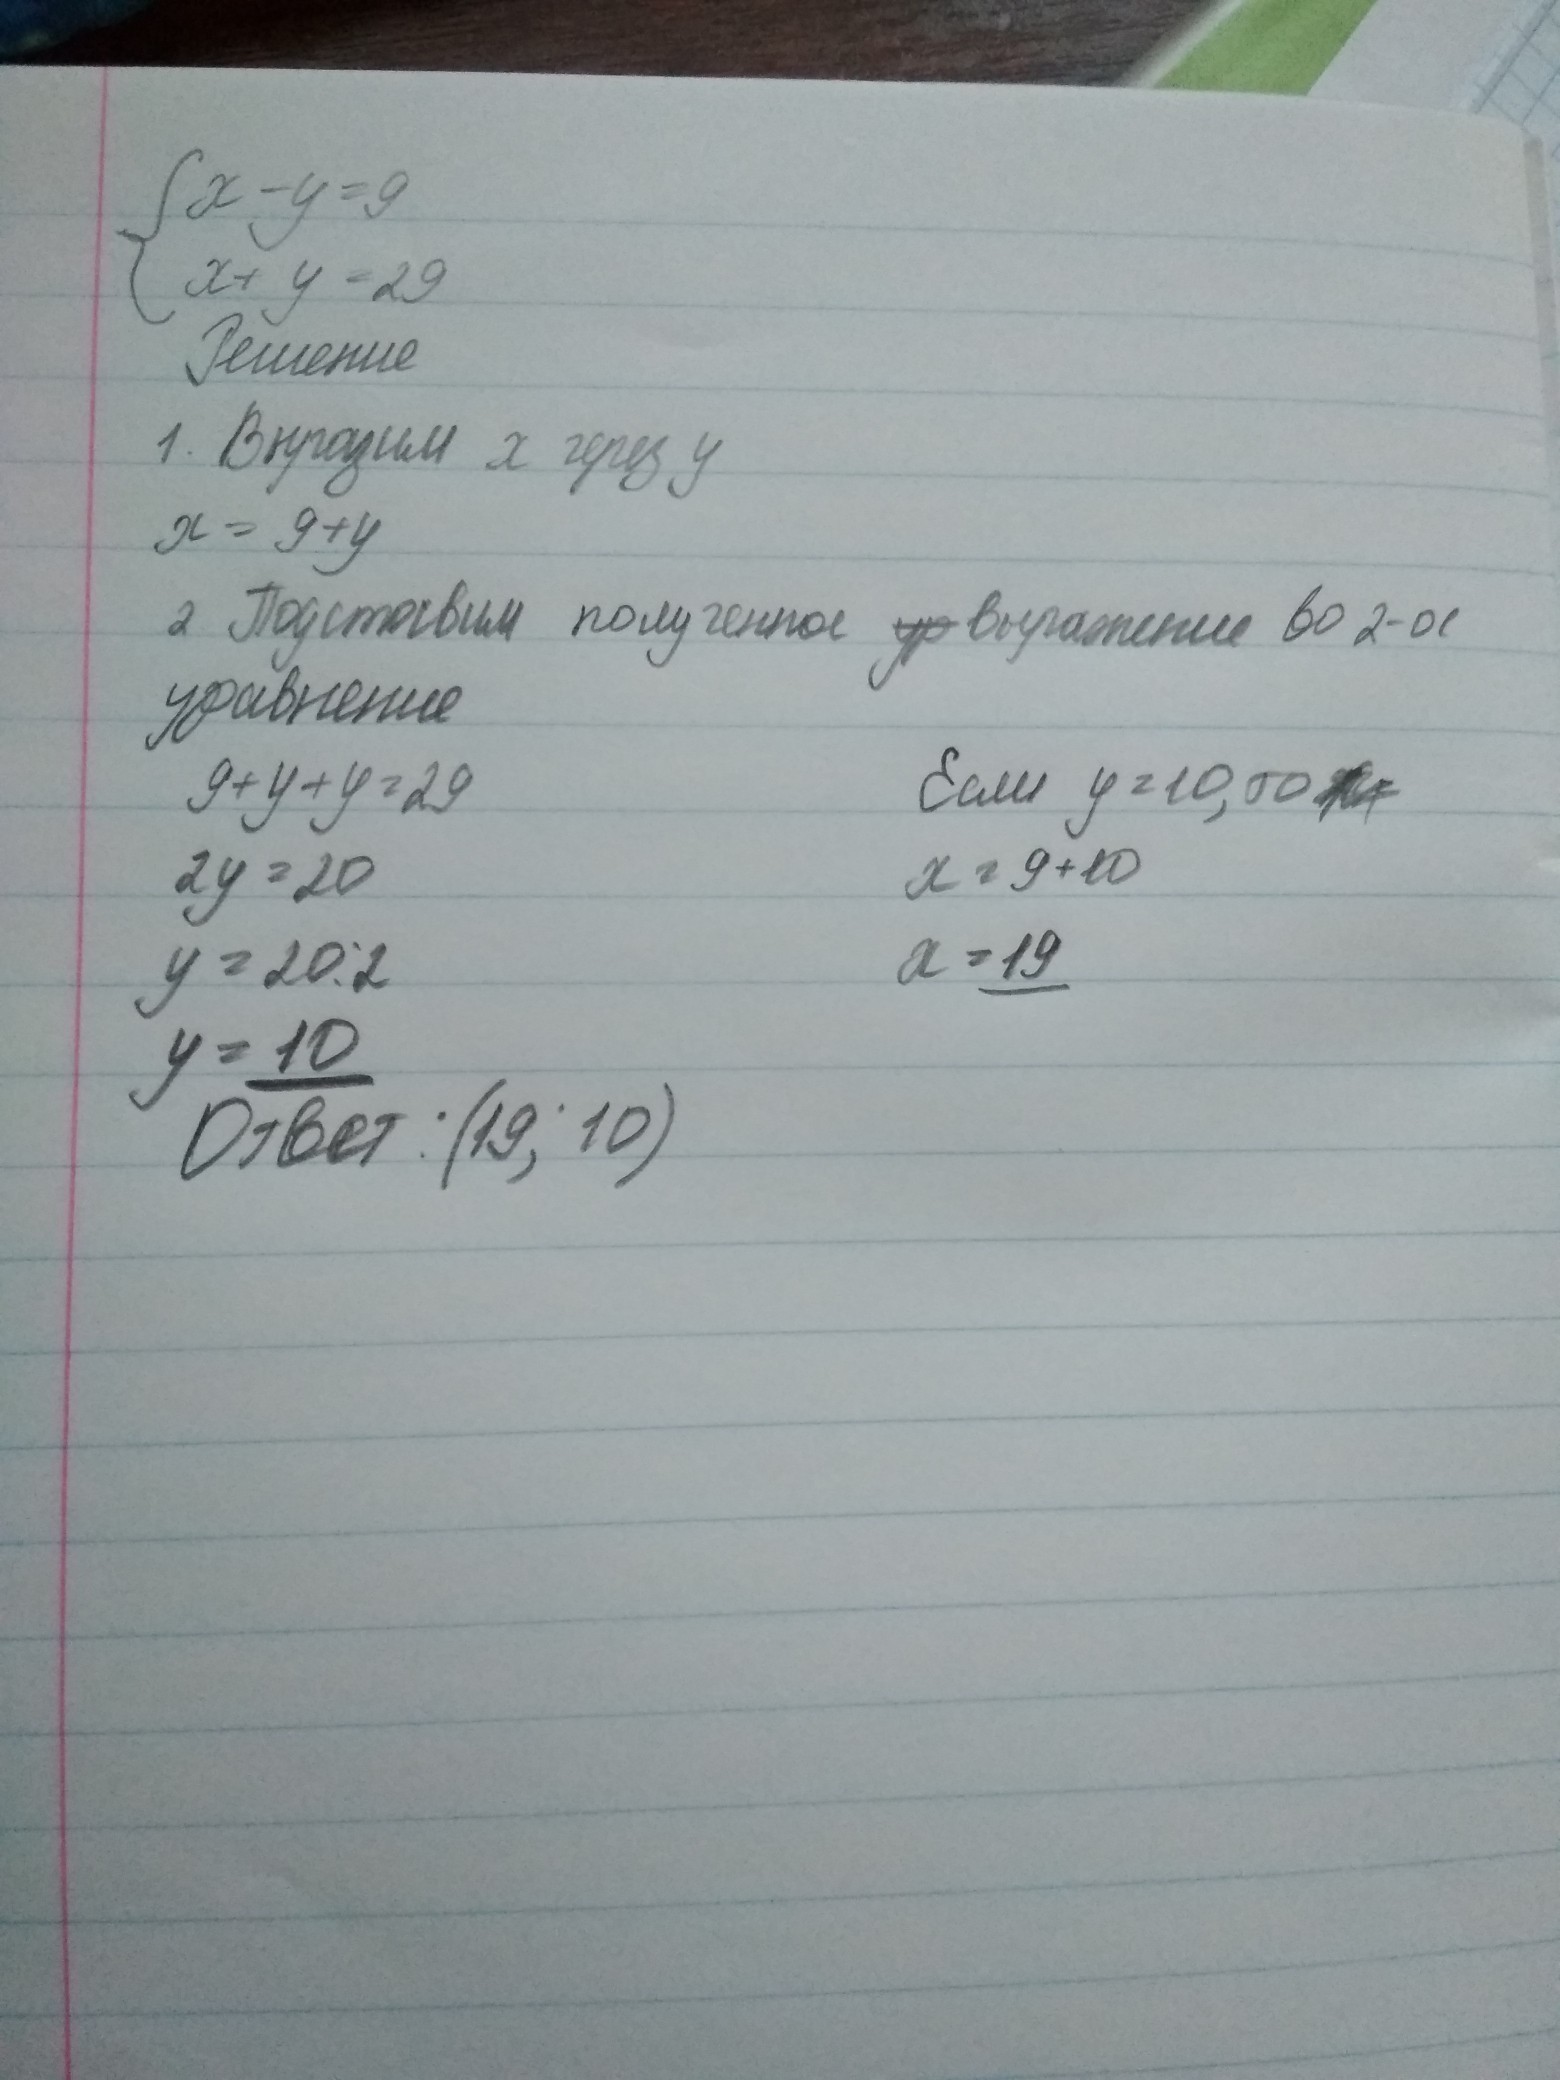 { x - y = 9
x + y = 29
Решение
1. Выразим x через y
x = 9+y
2 Подставим полученное ур выражение во 2-ое
уравнение
9+y+y=29
2y=20
y=20:2
y=10
Если y=10, то
x=9+10
x=19
Ответ: (19; 10)